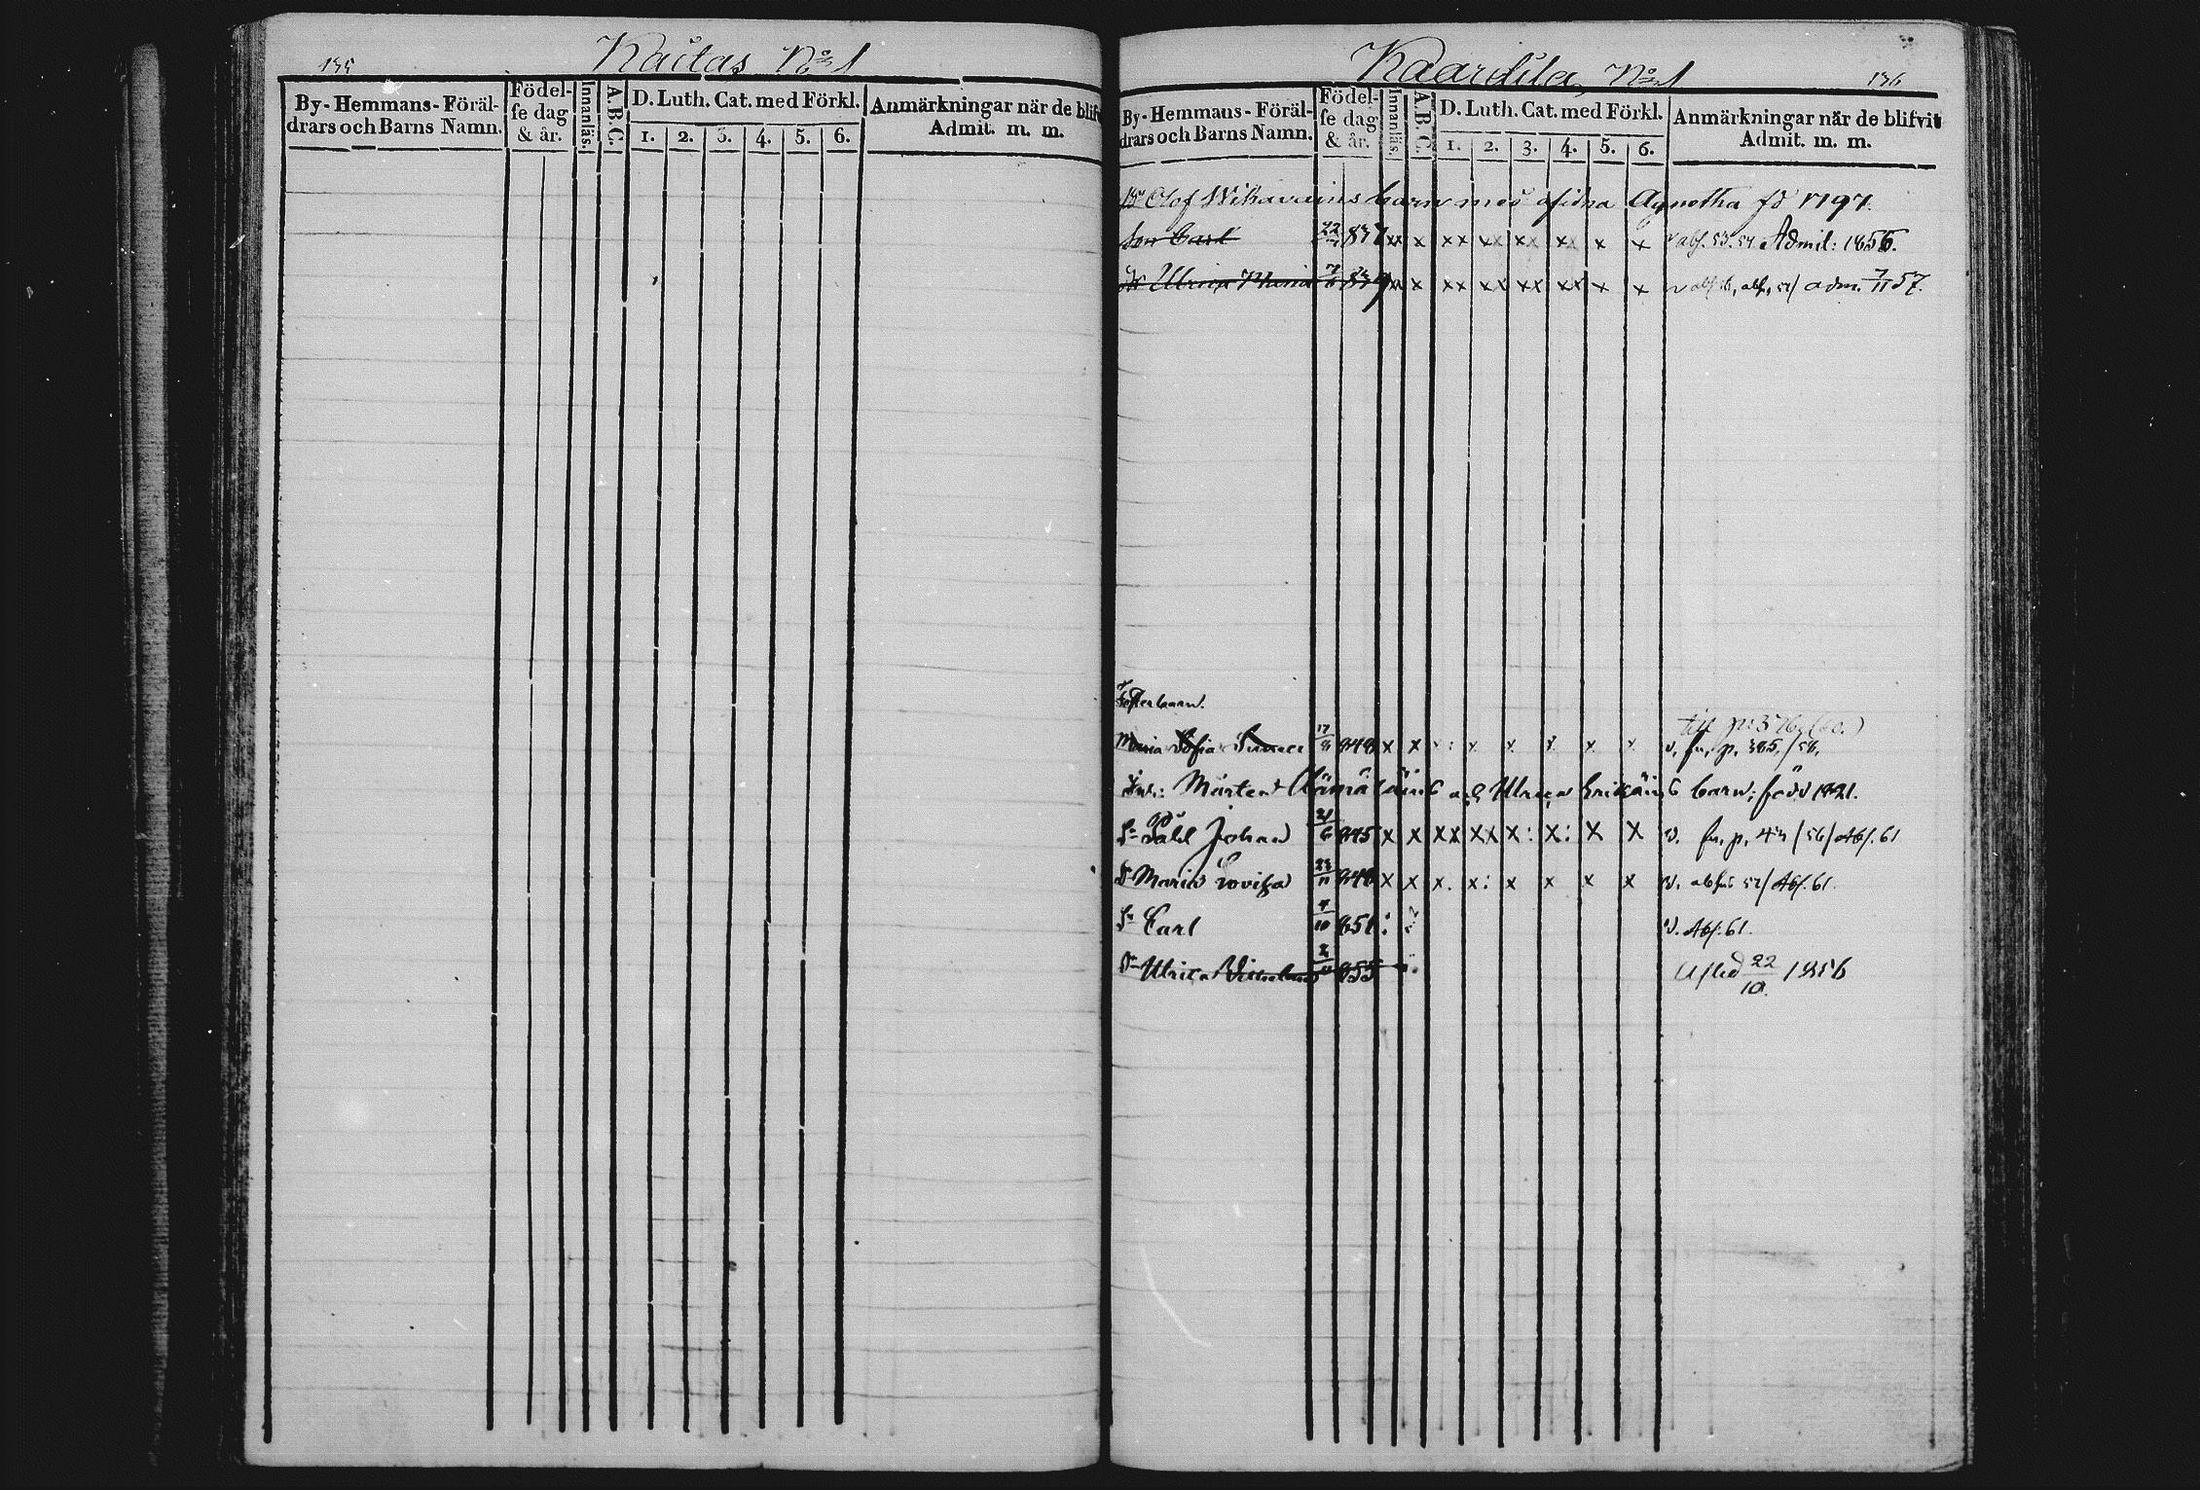 135
Kautas No 1
By-Hemmans-Föräl-
drars och Barns Namn.
Födel-
se dag
& år.
Innanläs.
A.B.C.
D. Luth. Cat. med Förkl.
1. 2. 3. 4. 5. 6.
Anmärkningar när de blifvit
Admit. m. m.
Kaardila No 1
136
By-Hemmans-Föräl-
drars och Barns Namn.
Födel-
se dag
& år.
Innanläs.
A.B.C.
D. Luth. Cat. med Förkl.
1. 2. 3. 4. 5. 6.
Anmärkningar när de blifvit
Admit. m. m.
Olof barn med afidna Agnetha fd 1797.
Son Carl 22 837 xx x xx xx xx xx x x abs. 53. 54. Admit: 1856.
Dr Ulrica x xx xx xx xx x x adm. 7/11 57.
Fosterbarn.
till p: 376 (60.)
Maria Sofia 17/8 848 x x x x x x x v. fr. p. 385./58.
Inh: Mårten och Ulrica barn; född 1821.
Sn Johan 21/6 845 x x xx xx x: x: x x v. fr. p. /56/ Abs. 61
Dr Maria Lovisa 23/11 848 x x x. x: x x x x v. Abs. 61.
Sn Carl 4/10 851 : v. Abs. 61.
Dr Ulrica Wilhelmina 855 Afled 22/10. 1856